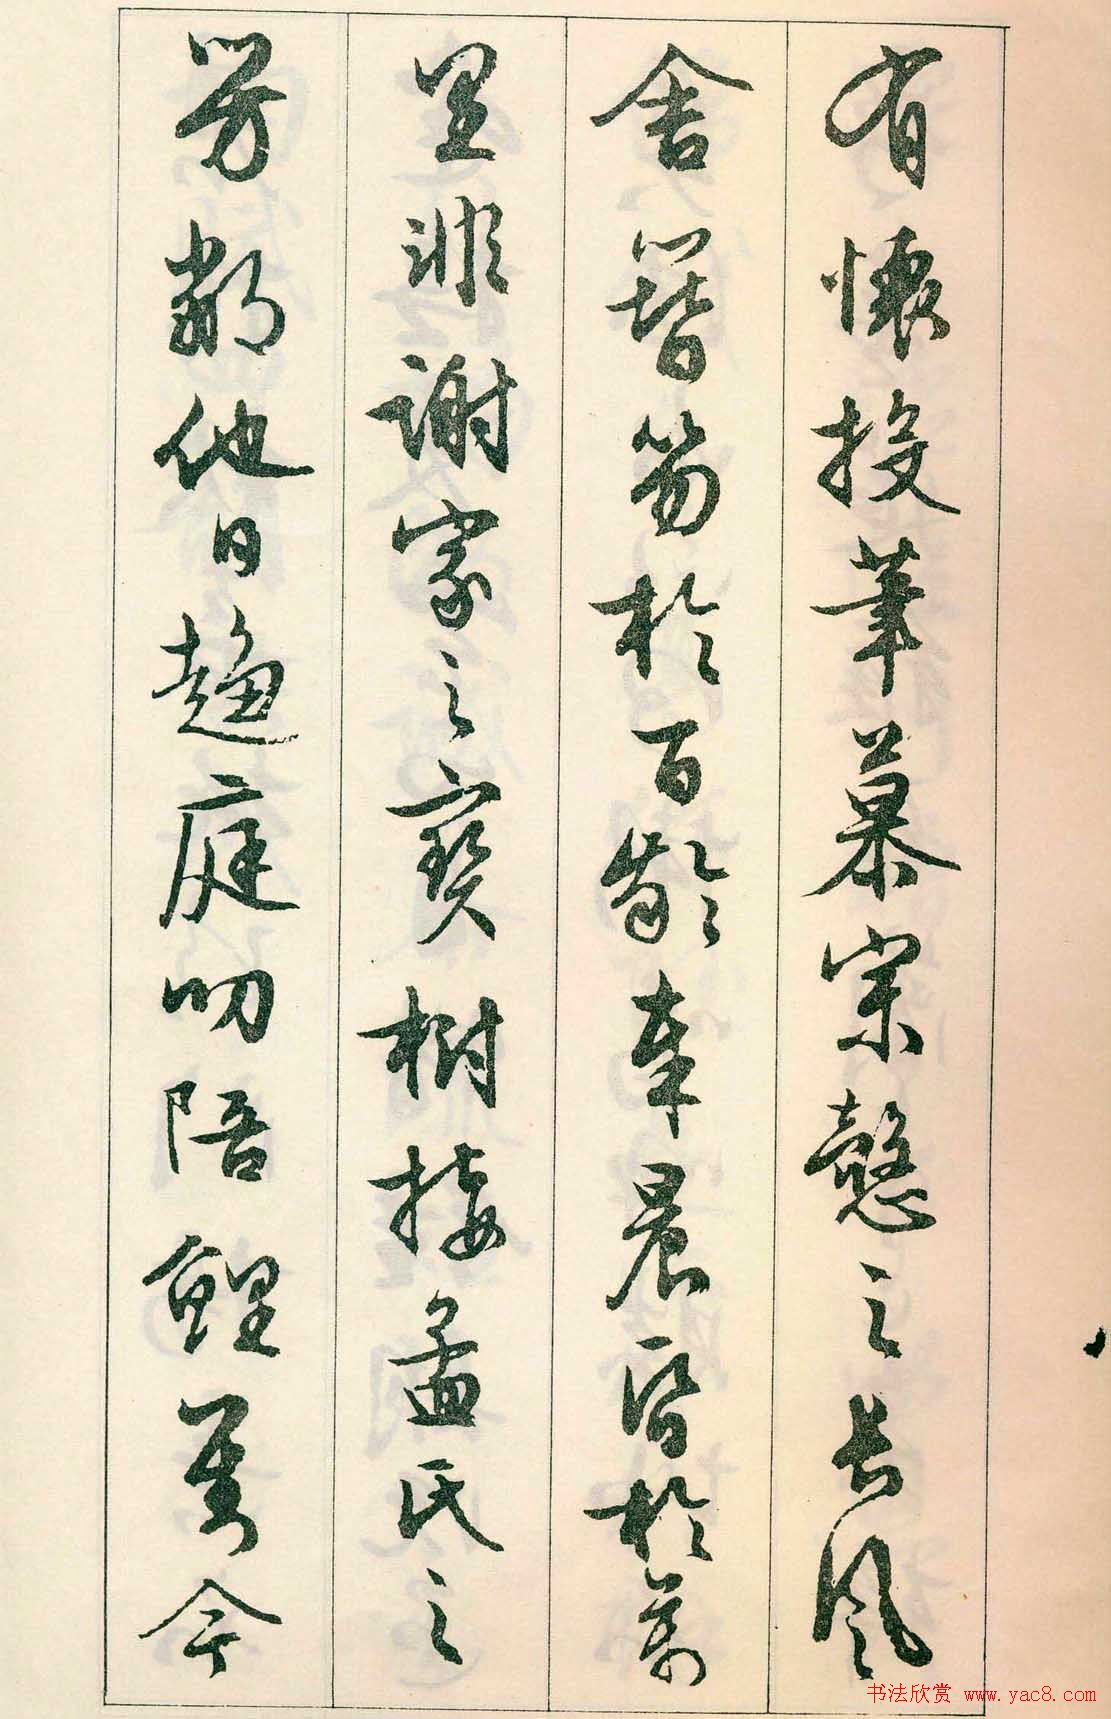 有懷投筆慕宗愨之長風
舍簪笏於百齡奉晨昏於萬
里非謝家之寶樹接孟氏之
芳鄰他日趨庭叨陪鯉對今
书法欣赏 www.yac8.com